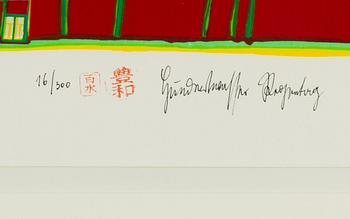 16/300 百水 豊和 Hundertwasser